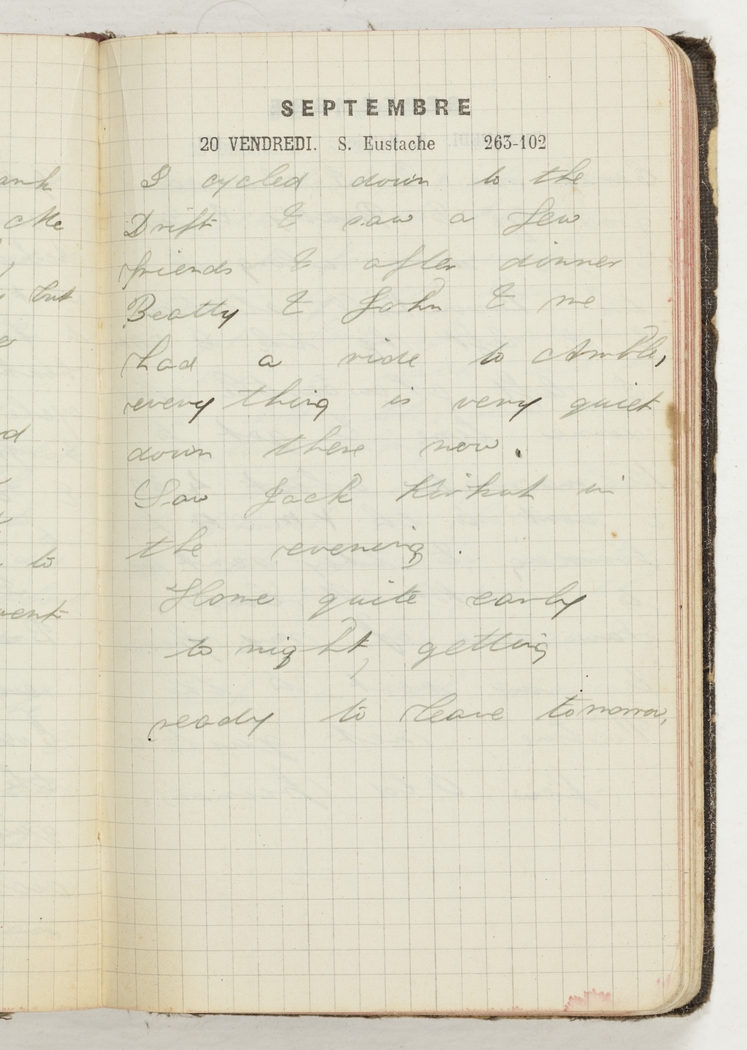 SEPTEMBRE
20 VENDREDI. S. Eustache 263-102
I cycled down to the
Drift & saw a few
friends & after dinner
Beatty & John & me
had a ride to Amble,
every thing is very quiet
down there now.
Saw Jack in
the evening.
Home quite early
to night, getting
ready to leave tomorrow,
but
to